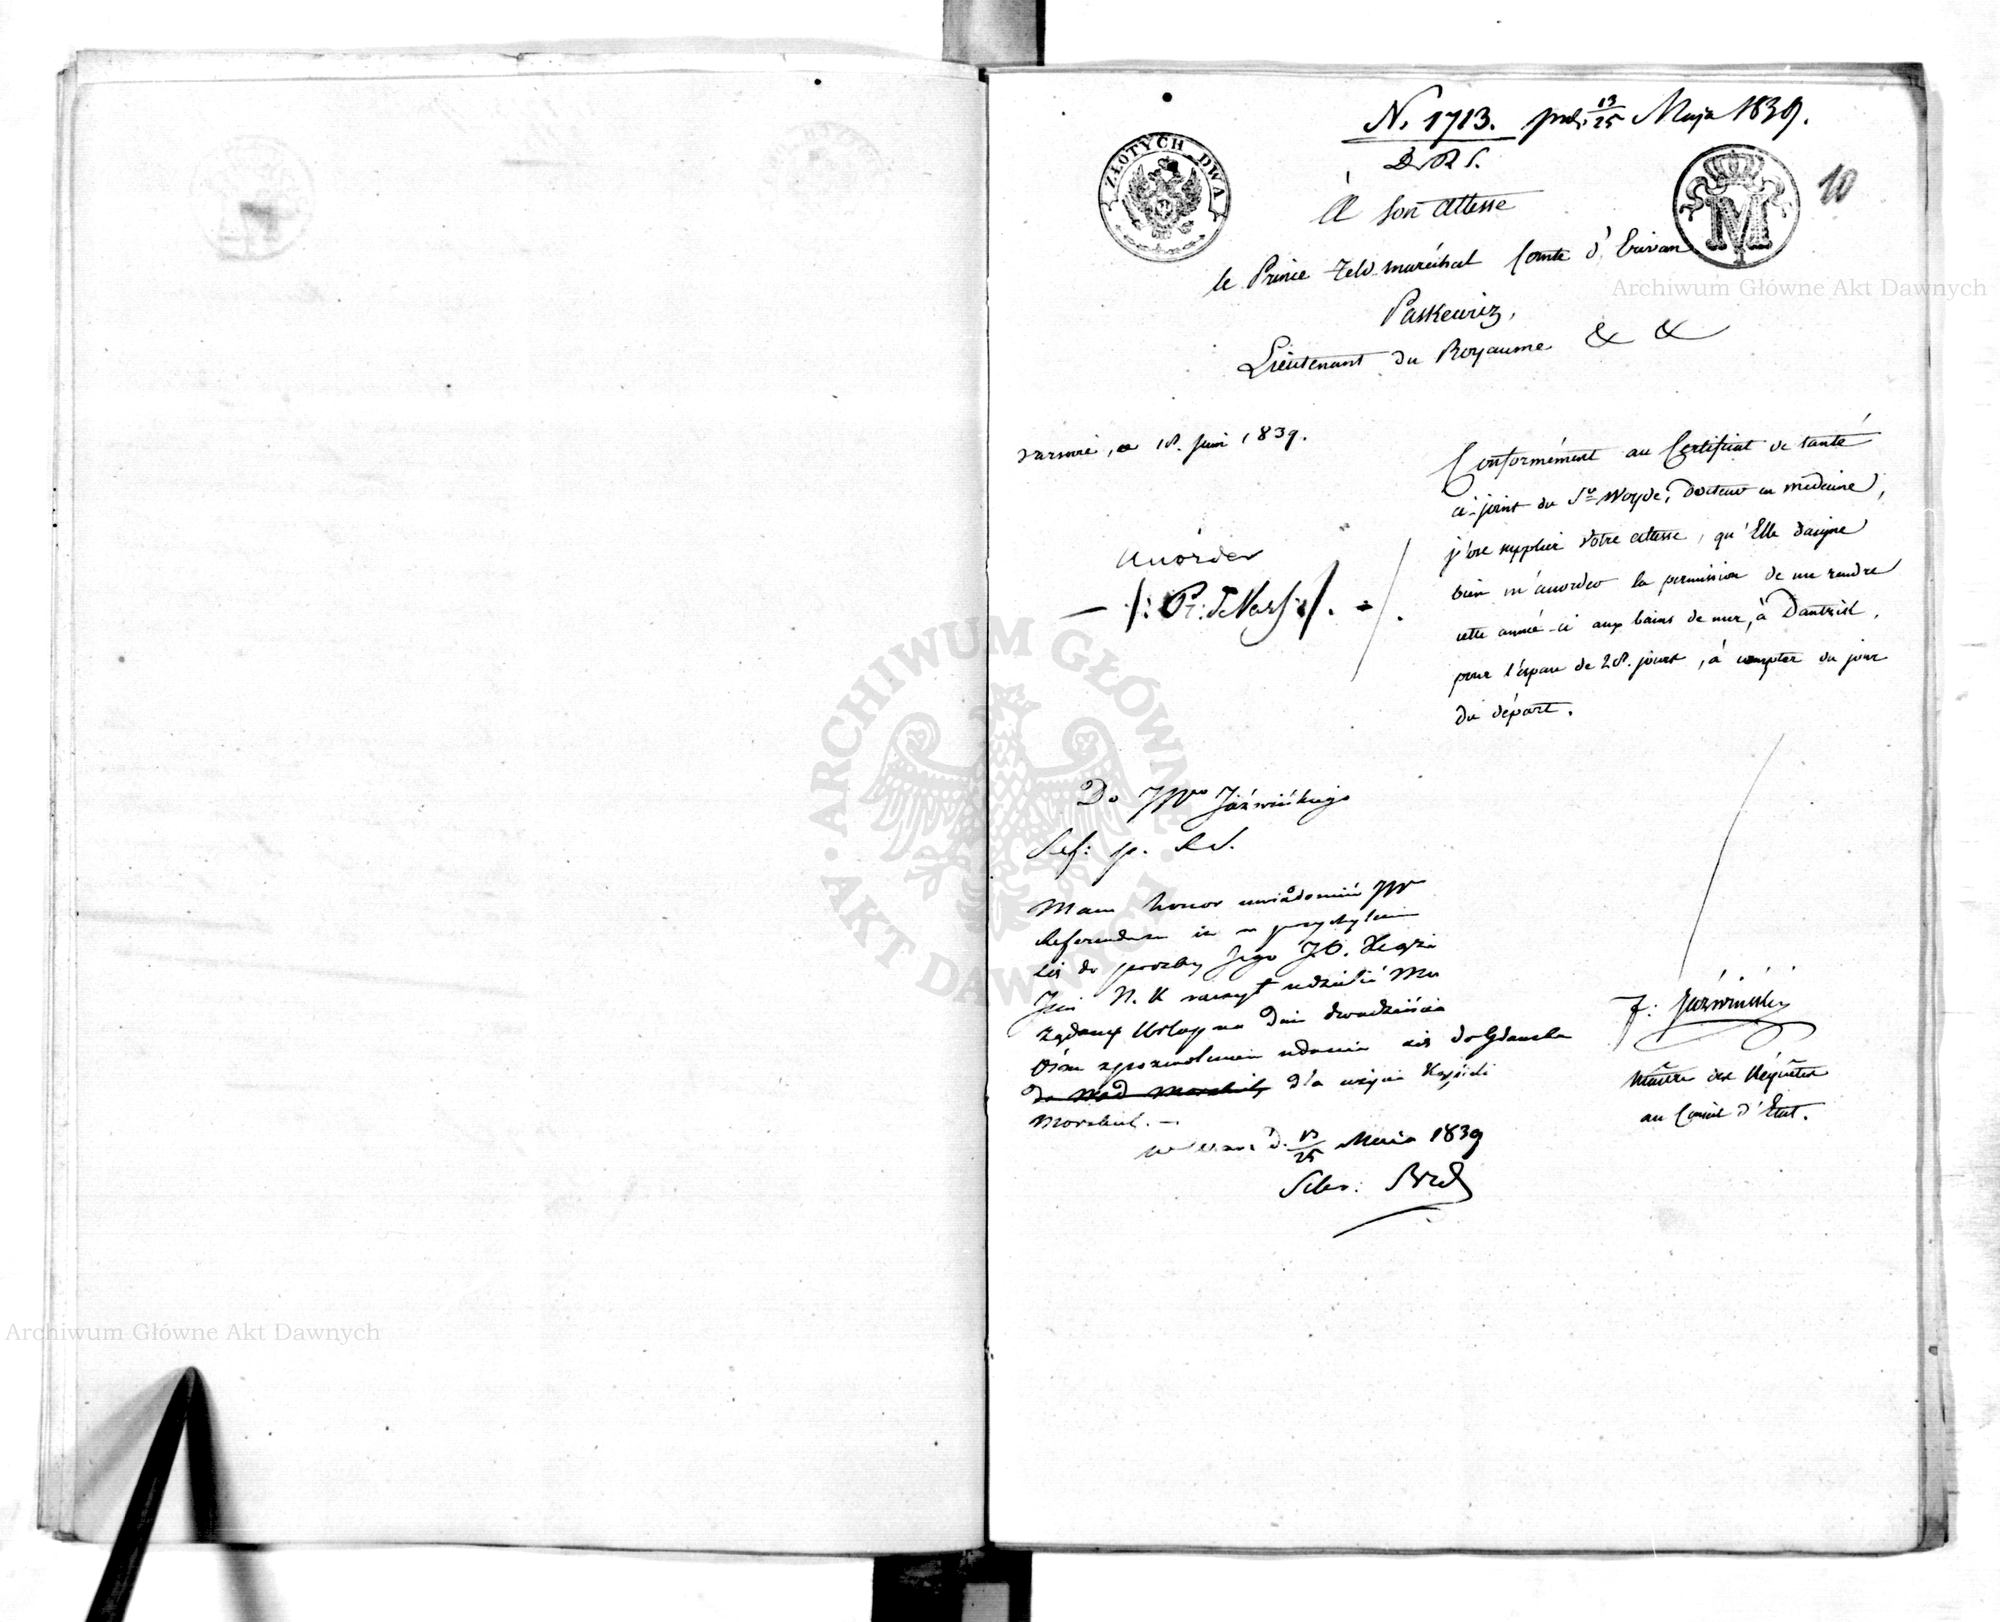 N. 1713. pod: 13/25 Maja 1839.
D. R. S.
ZŁOTYCH DWA
M
10
À Son Altesse
le Prince Feld-maréchal Comte d'Erivan
Paskewicz,
Lieutenant du Royaume & &
Archiwum Główne Akt Dawnych
Varsovie, ce 18. Juin 1839.
Conformément au Certificat de santé
ci-joint du Sr Woyde, Docteur en médecine,
j'ose supplier Votre Altesse, qu'Elle daigne
bien m'accorder la permission de me rendre
cette année-ci aux bains de mer, à Dantzick,
pour l'espace de 28. jours, à compter du jour
du départ.
Accorder
F: Jaźwiński
Maître des Réquêtes
au Conseil d'Etat.
Do JWo Jaźwińskiego
Ref: p. R. S.
Mam honor uwiadomić JW
Referendarza iż w przychyleniu
się do prozby Jego JO. Xięże
Jmć N. K raczył udzielić Mu
żądany Urlop na dni dwadzieścia
Ośm z pozwoleniem udania się do Gdańska
do Wód Morskich dla użycia Kąpieli
Morskich. —
w Warsz d. 13/25 Maia 1839
ARCHIWUM GŁÓWNE AKT DAWNYCH
Archiwum Główne Akt Dawnych